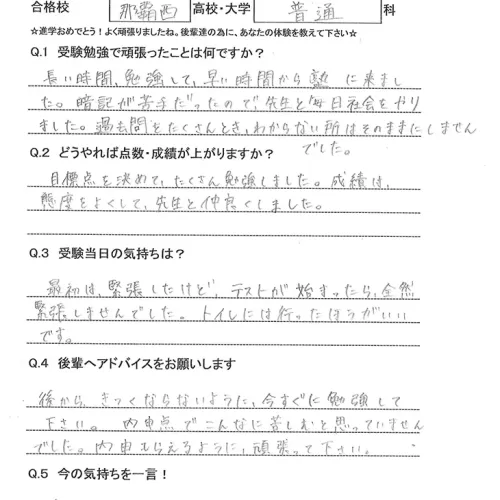 合格校 那覇西 高校・大学 普通 科
☆進学おめでとう！よく頑張りましたね。後輩達の為に、あなたの体験を教えて下さい☆
Q.1 受験勉強で頑張ったことは何ですか？
長い時間、勉強して、早い時間から塾に来まし
た。暗記が苦手だったので、先生と毎日社会をやり
ました。過去問をたくさんとき、わからない所はそのままにしません
でした。
Q.2 どうやれば点数・成績が上がりますか？
目標点を決めて、たくさん勉強しました。成績は、
態度をよくして、先生と仲良くしました。
Q.3 受験当日の気持ちは？
最初は、緊張したけど、テストが始まったら、全然
緊張しませんでした。トイレには行ったほうがいい
です。
Q.4 後輩へアドバイスをお願いします
後から、きつくならないように、今すぐに勉強して
下さい。内申点でこんなに苦しむと思っていません
でした。内申もらえるように、頑張って下さい。
Q.5 今の気持ちを一言！